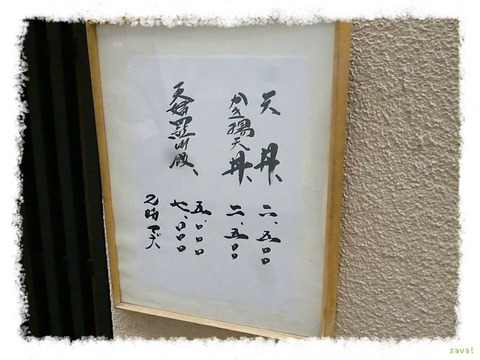 天丼、二、五〇〇
かき揚天丼、二、五〇〇
天婦羅御飯、五、〇〇〇
七、〇〇〇
2時マデ
sava!